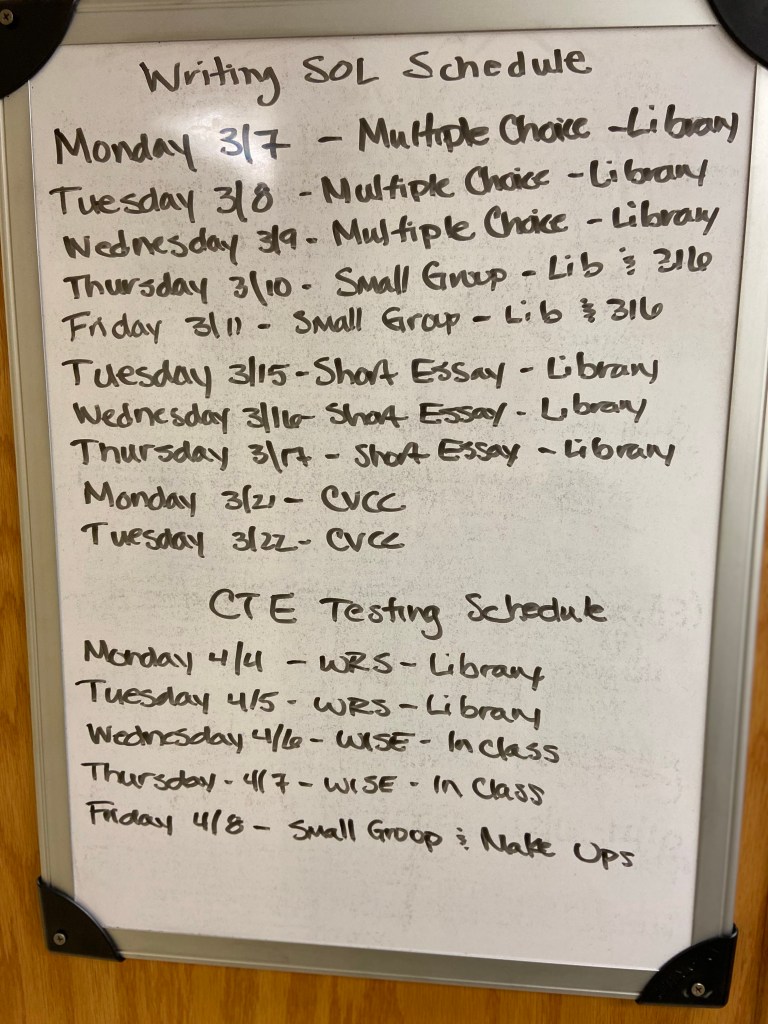 Writing SOL Schedule
Monday 3/7 - Multiple Choice - Library
Tuesday 3/8 - Multiple Choice - Library
Wednesday 3/9 - Multiple Choice - Library
Thursday 3/10 - Small Group - Lib & 316
Friday 3/11 - Small Group - Lib & 316
Tuesday 3/15 - Short Essay - Library
Wednesday 3/16 - Short Essay - Library
Thursday 3/17 - Short Essay - Library
Monday 3/21 - CVCC
Tuesday 3/22 - CVCC
CTE Testing Schedule
Monday 4/4 - WRS - Library
Tuesday 4/5 - WRS - Library
Wednesday 4/6 - WISE - In class
Thursday - 4/7 - WISE - In Class
Friday 4/8 - Small Group & Make Ups